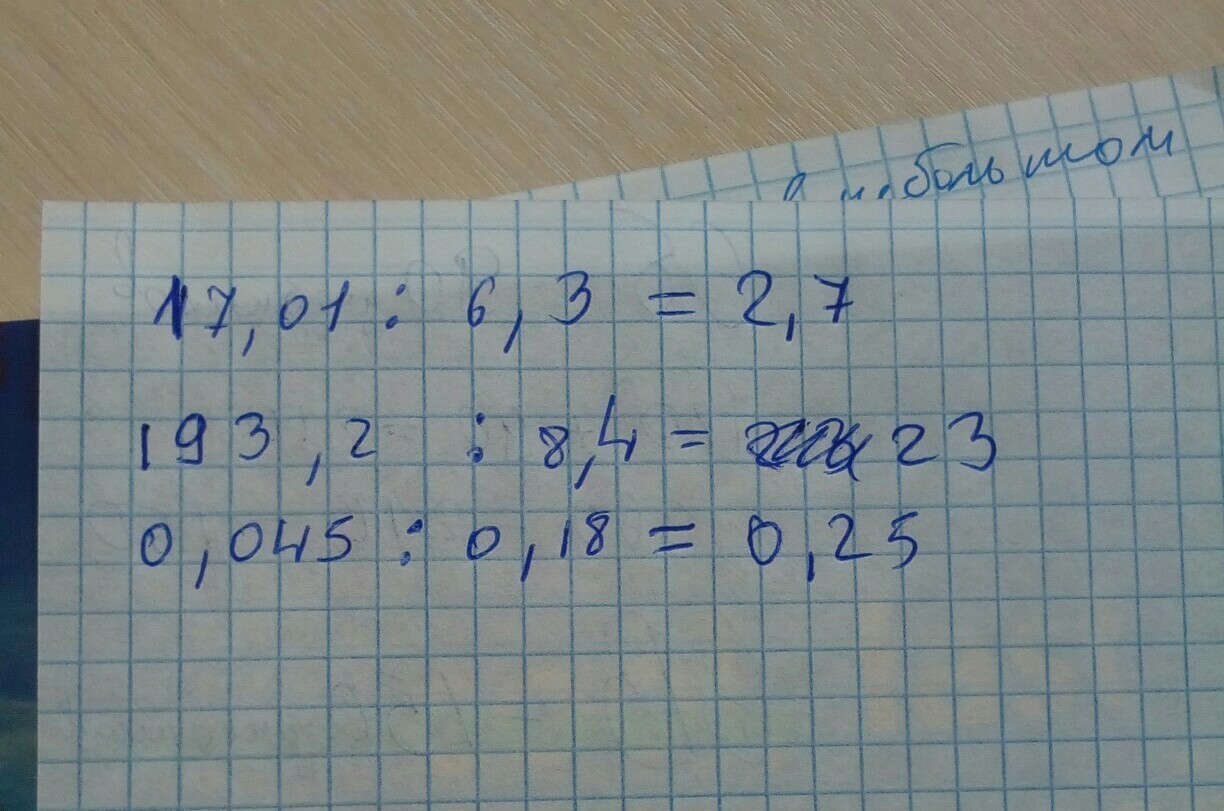 небольшом
17,01 : 6,3 = 2,7
193,2 : 8,4 = 23
0,045 : 0,18 = 0,25